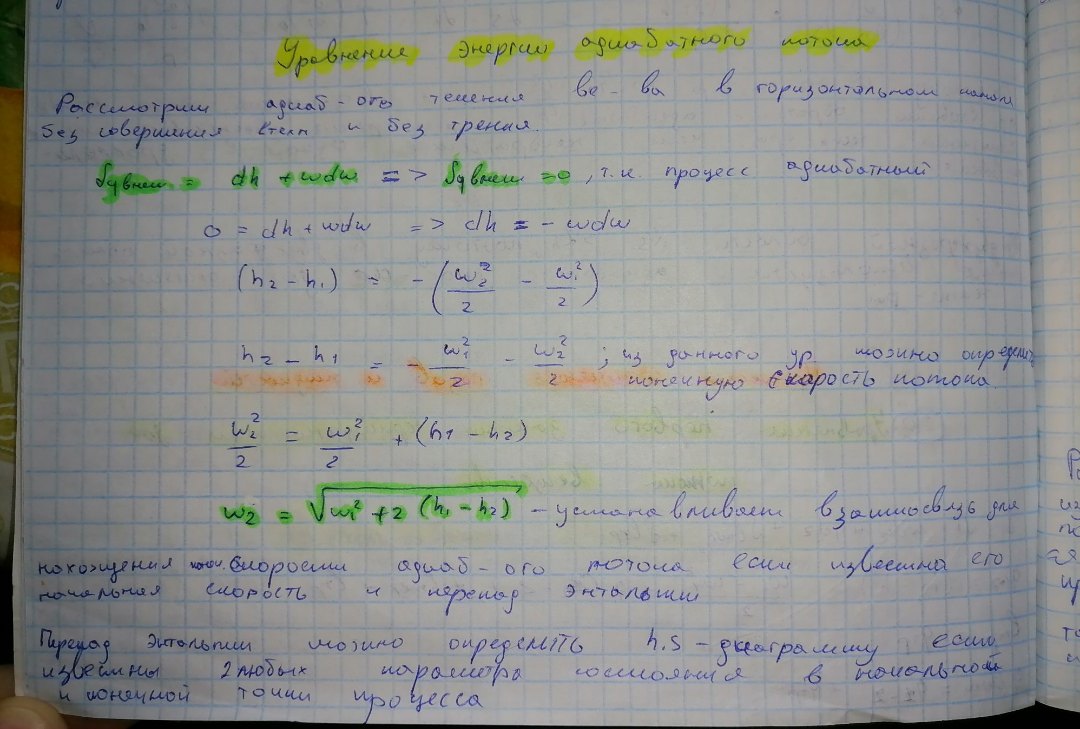 Уравнение энергии адиабатного потока
Рассмотрим адиаб-ого течения ве-ва в горизонтальном канале
без совершения lтехн и без трения.
δqвнеш = dh + wdw => δqвнеш = 0, т.к. процесс адиабатный
0 = dh + wdw => dh = - wdw
(h2 - h1) = - (w2²/2 - w1²/2)
h2 - h1 = w1²/2 - w2²/2 ; из данного ур. можно определить
конечную скорость потока.
w2²/2 = w1²/2 + (h1 - h2)
w2 = √(w1² + 2 (h1 - h2)) - устанавливает взаимосвязь для
нахождения кон. скорости адиаб-ого потока если известна его
начальная скорость и перепад энтальпии
Перепад энтальпии можно определить h,s - диаграмму если
известны 2 любых параметра состояния в начальной
и конечной точки процесса